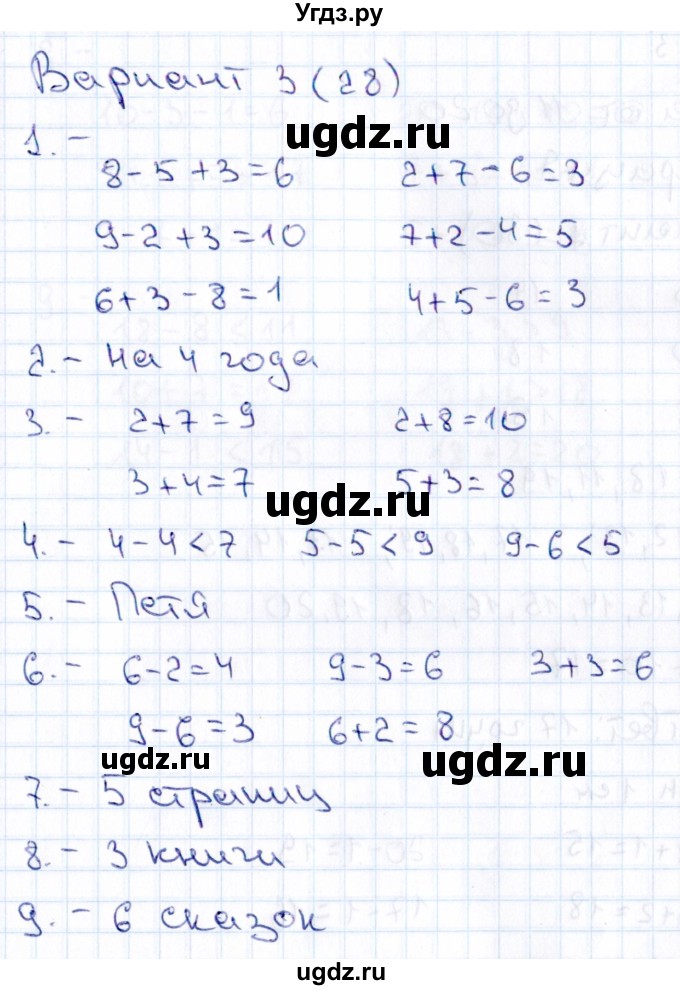 Угдз.ру
Вариант 3 (28)
ugdz.ru
1. -
8 - 5 + 3 = 6 2 + 7 - 6 = 3
9 - 2 + 3 = 10 7 + 2 - 4 = 5
6 + 3 - 8 = 1 4 + 5 - 6 = 3
2. - На 4 года
3. - 2 + 7 = 9 2 + 8 = 10
3 + 4 = 7 5 + 3 = 8
ugdz.ru
4. - 4 - 4 < 7 5 - 5 < 9 9 - 6 < 5
5. - Петя
6. - 6 - 2 = 4 9 - 3 = 6 3 + 3 = 6
9 - 6 = 3 6 + 2 = 8
ugdz.ru ugdz.ru
7. - 5 страниц
8. - 3 книги
9. - 6 сказок
ugdz.ru